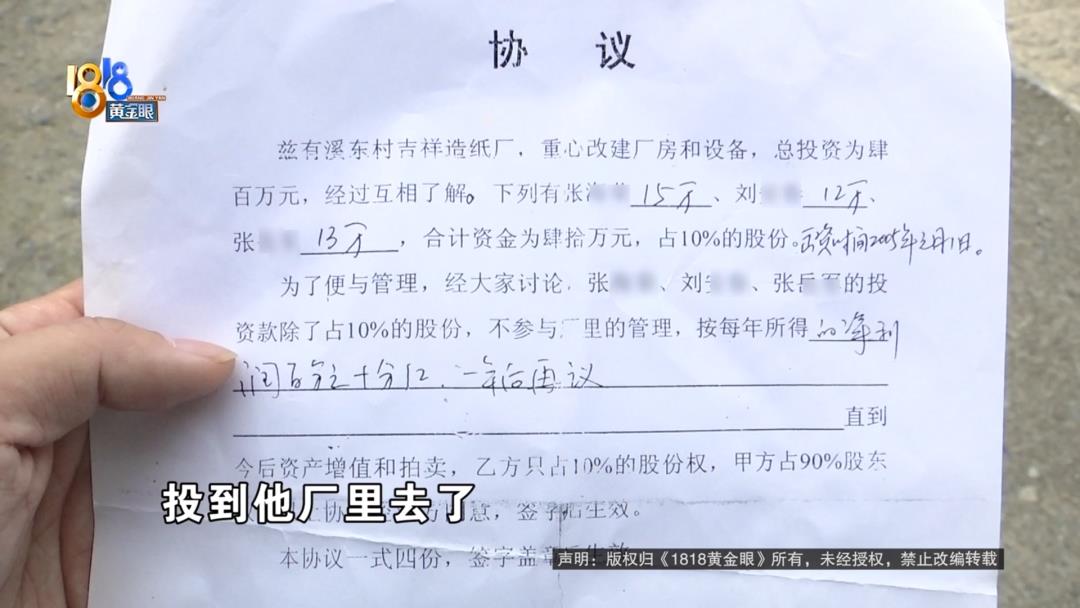 协 议
1818
HUANG JIN YAN
黄金眼
兹有溪东村吉祥造纸厂，重心改建厂房和设备，总投资为肆
百万元，经过互相了解。下列有张 15万、刘 12万、
张 13万，合计资金为肆拾万元，占10%的股份。投资时间2005年2月1日。
为了便与管理，经大家讨论，张 、刘 、张 的投
资款除了占10%的股份，不参与厂里的管理，按每年所得的净利
润百分之十分红，一年后再议
直到
今后资产增值和拍卖，乙方只占10%的股份权，甲方占90%股东
投到他厂里去了 意，签字后生效。
本协议一式四份，签字盖章
声明：版权归《1818黄金眼》所有，未经授权，禁止改编转载